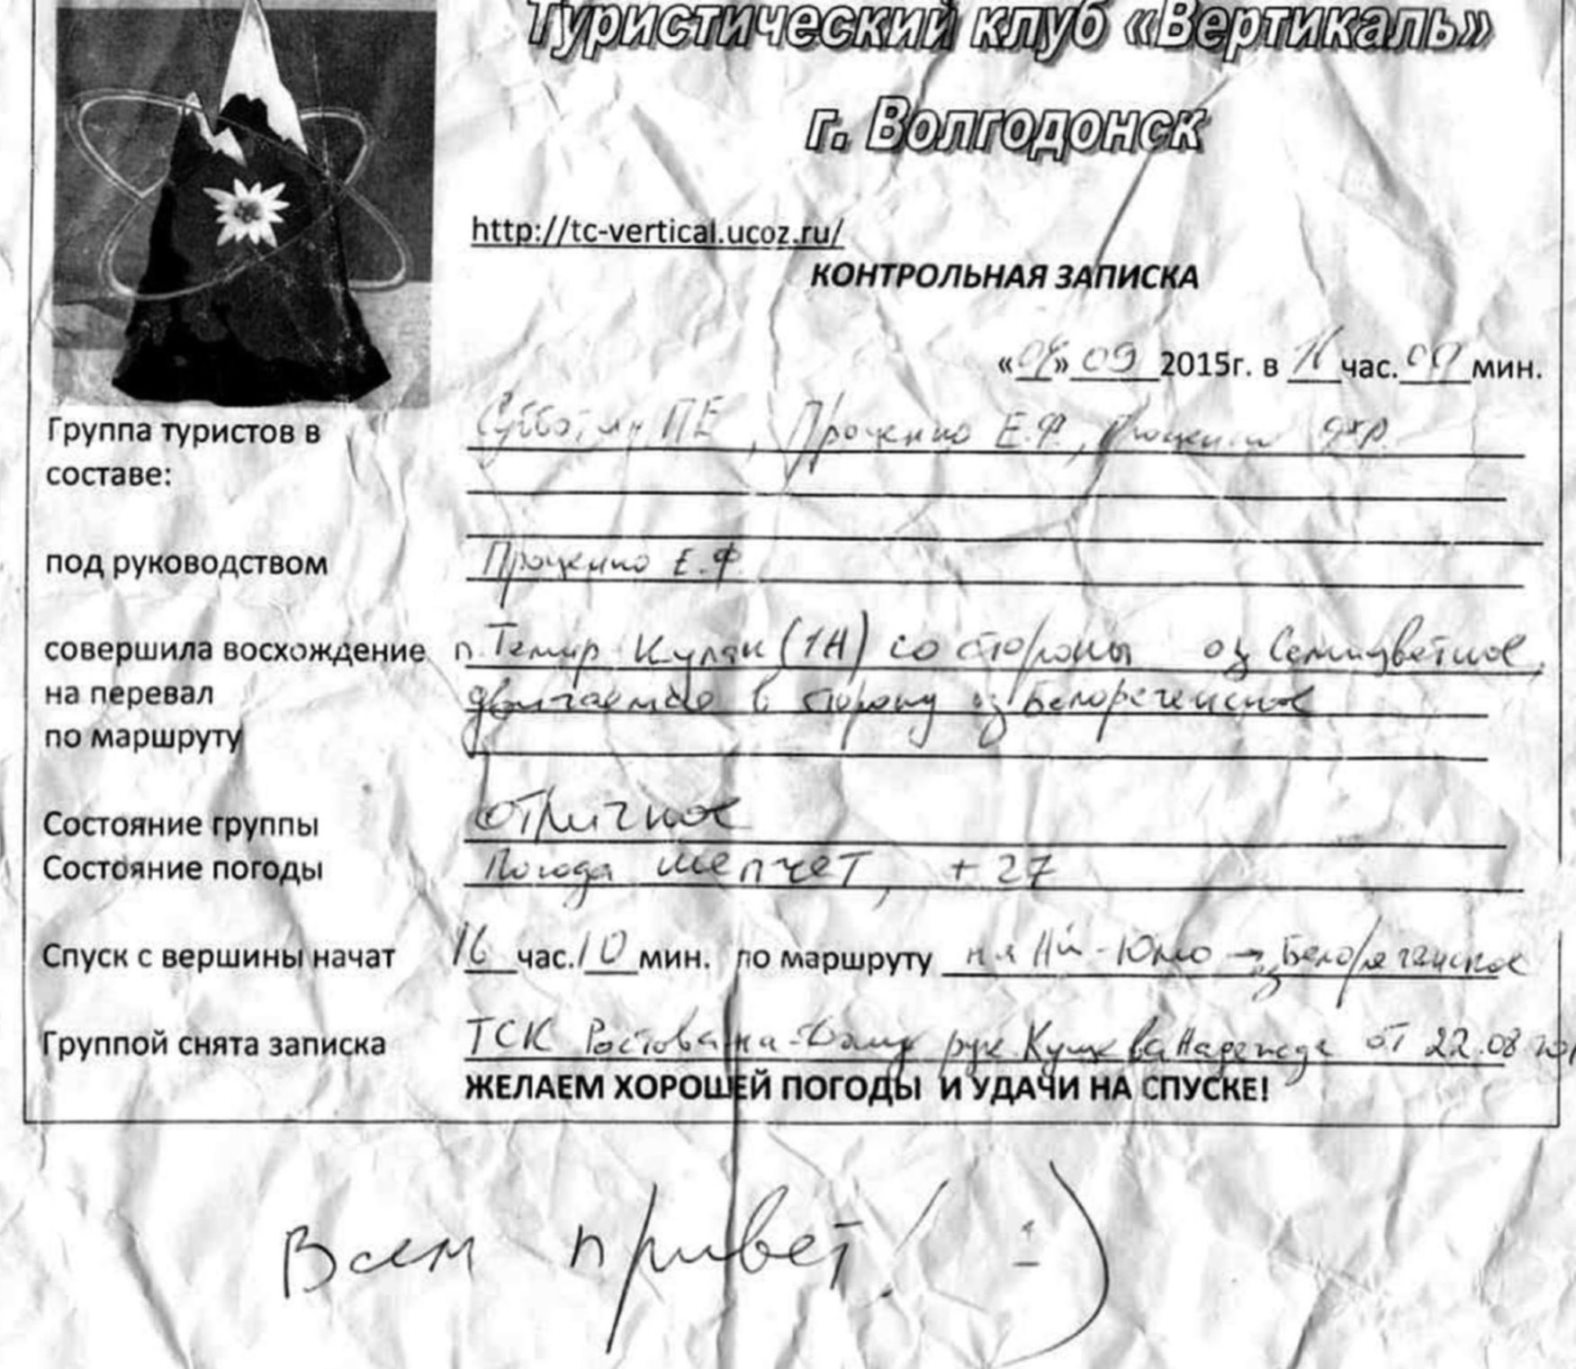 Туристический клуб «Вертикаль»
г. Волгодонск
http://tc-vertical.ucoz.ru/
КОНТРОЛЬНАЯ ЗАПИСКА
« » 09 2015г. в 16 час. 00 мин.
Группа туристов в составе: Субботин П Е, Проценко Е.Ф., Проценко
под руководством Проценко Е.Ф.
совершила восхождение п. Темир Кулак (1А) со стороны оз Семицветное,
на перевал двигаемся в сторону оз Белореченское
по маршруту
Состояние группы отличное
Состояние погоды Погода шепчет, +27
Спуск с вершины начат 16 час. 10 мин. по маршруту на Юго → оз Белореченское
Группой снята записка ТСК Ростова-на-Дону рук. Надежда от 22.08
ЖЕЛАЕМ ХОРОШЕЙ ПОГОДЫ И УДАЧИ НА СПУСКЕ!
Всем привет! :-)